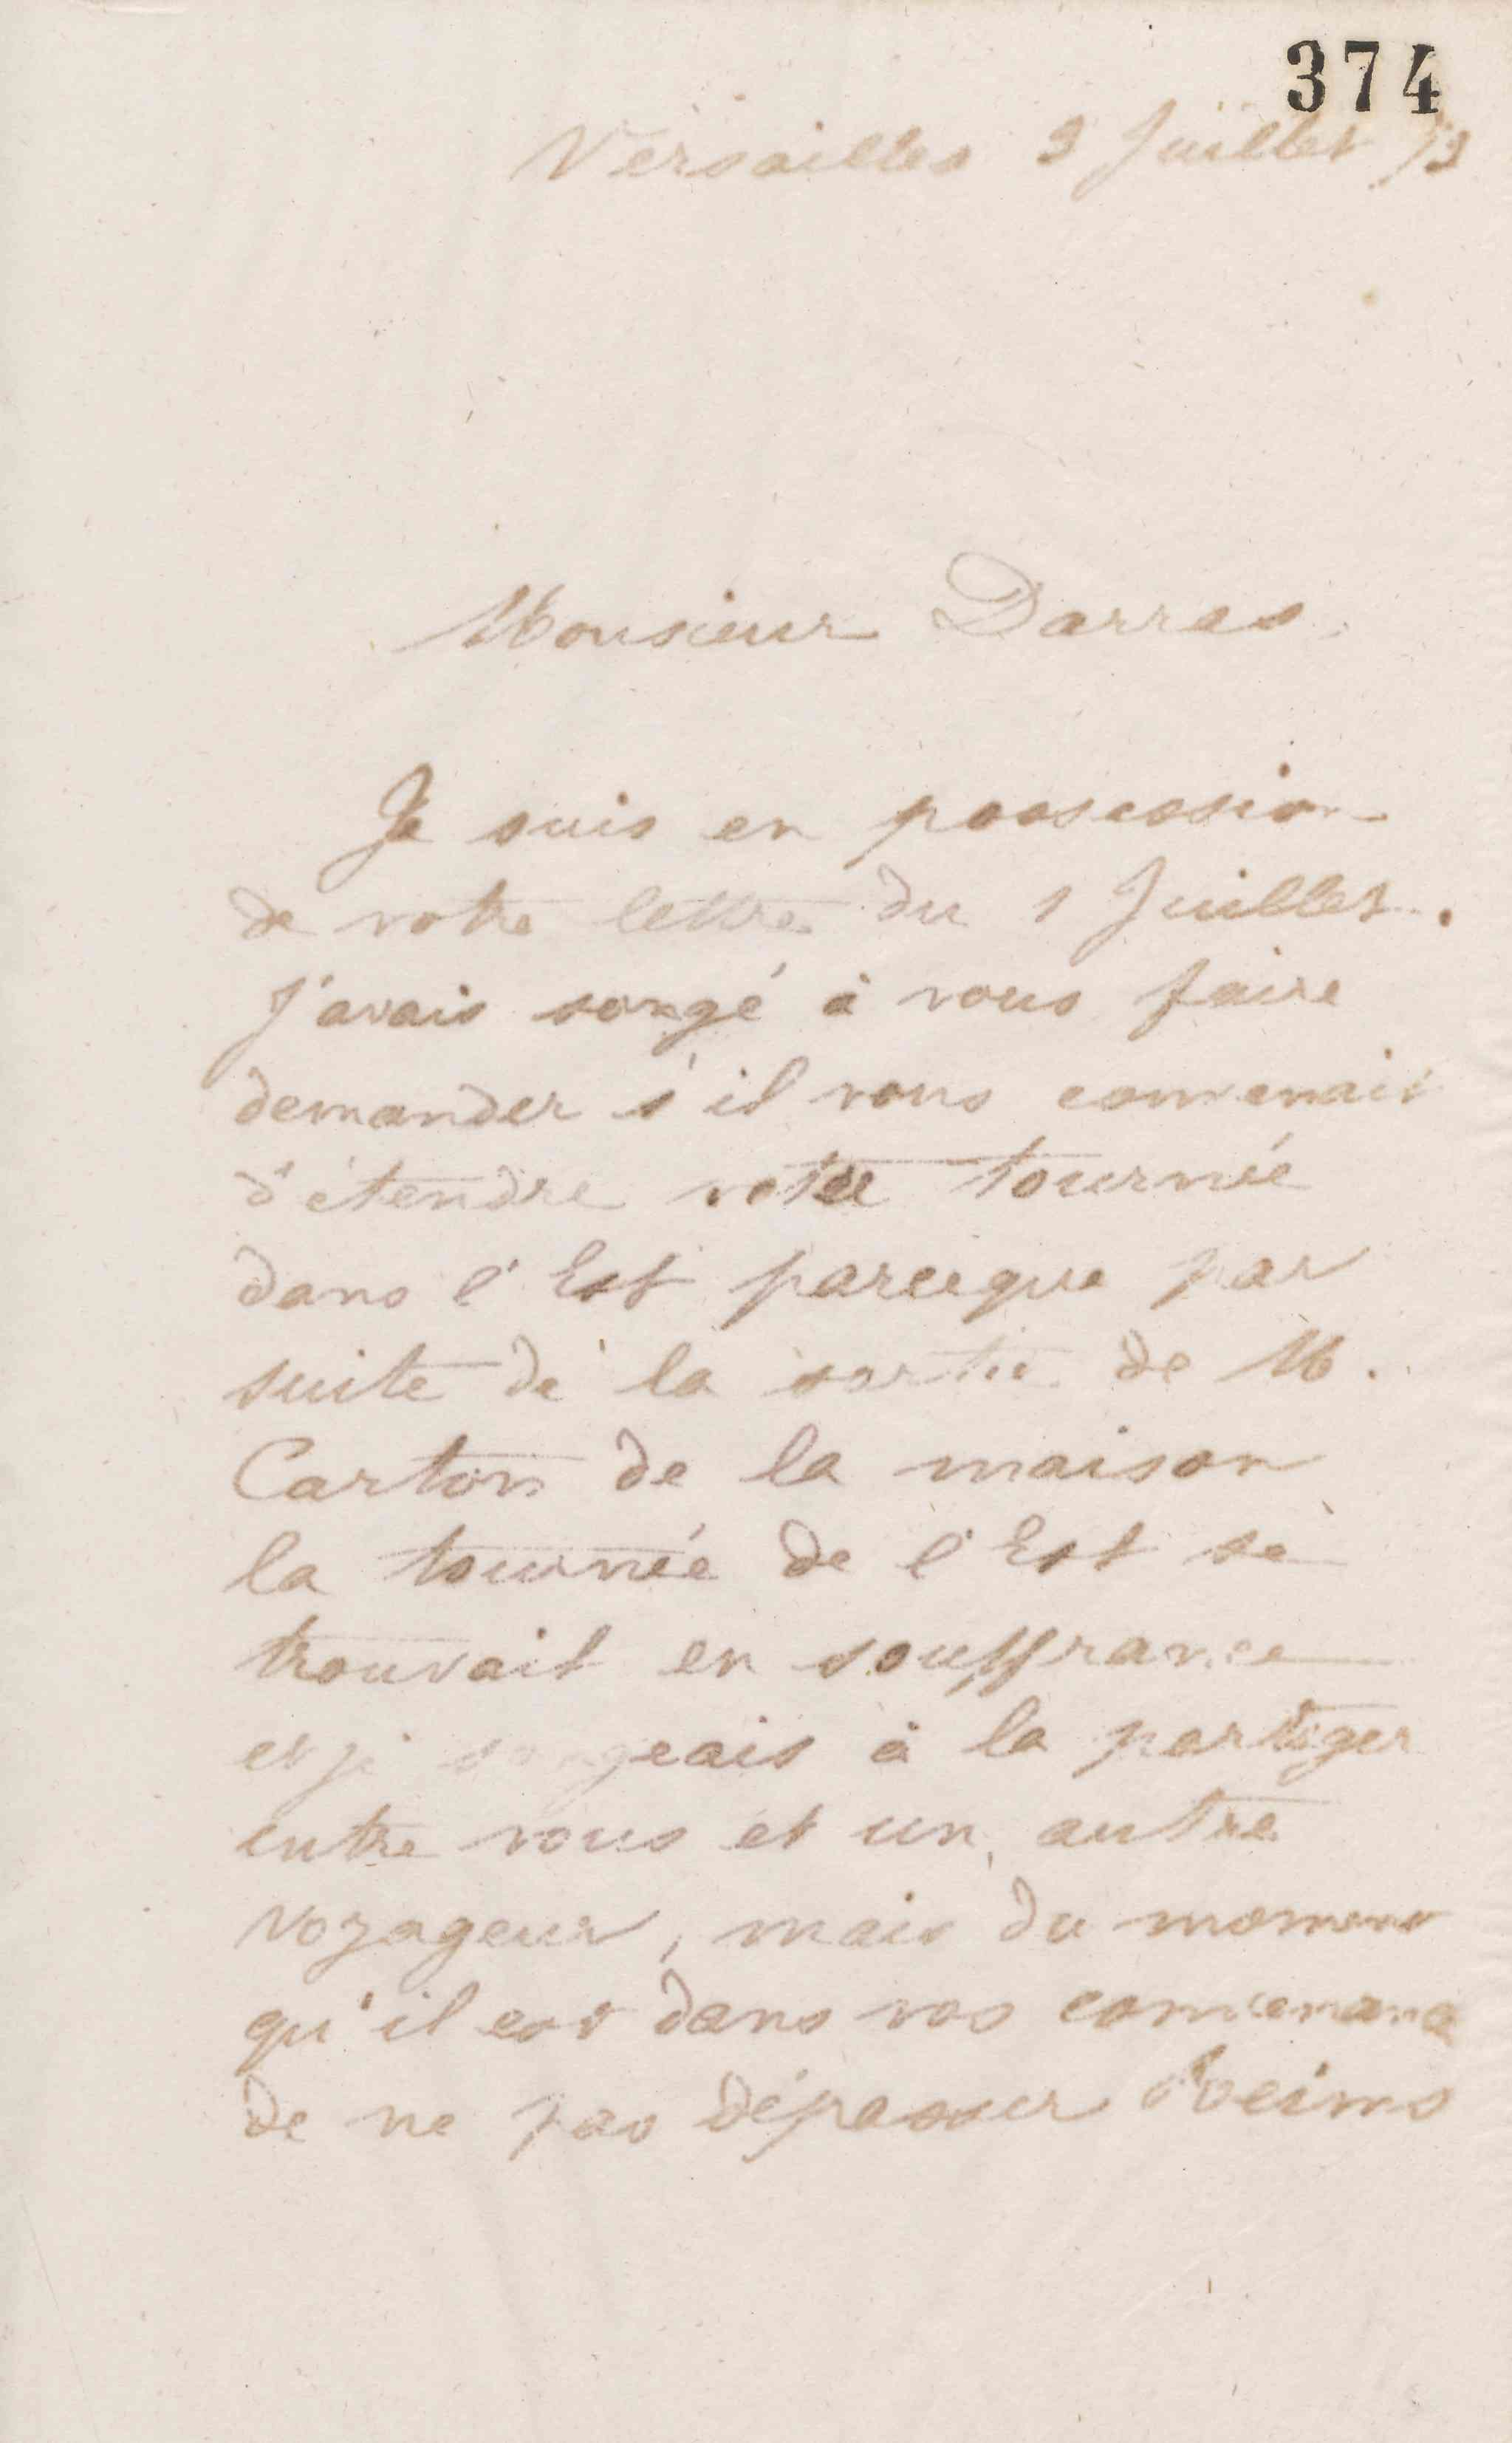 374
Versailles 3 Juillet 73
Monsieur Darras,
Je suis en possession
de votre lettre du 1 Juillet.
J'avais songé à vous faire
demander s'il vous convenait
d'étendre votre tournée
dans l'Est parceque par
suite de la sortie de M.
Carton de la maison
la tournée de l'Est se
trouvait en souffrance
et je songeais à la partager
entre vous et un autre
voyageur, mais du moment
qu'il est dans vos convenance
de ne pas dépasser Reims